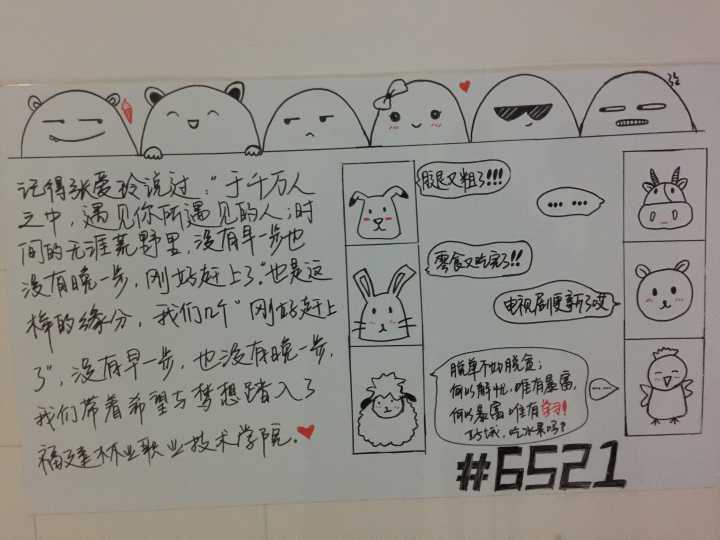 记得张爱玲说过:“于千万人
之中,遇见你所遇见的人;时
间的无涯荒野里,没有早一步也
没有晚一步,刚好赶上了。”也是这
样的缘分,我们几个“刚好赶上
了”,没有早一步,也没有晚一步,
我们带着希望与梦想踏入了
福建林业职业技术学院.
腿又粗了!!!
……
零食又吃完了!!
电视剧更新了哎
脱单不如脱贫;
何以解忧,唯有暴富,
何以暴富 唯有学习!
……
#6521